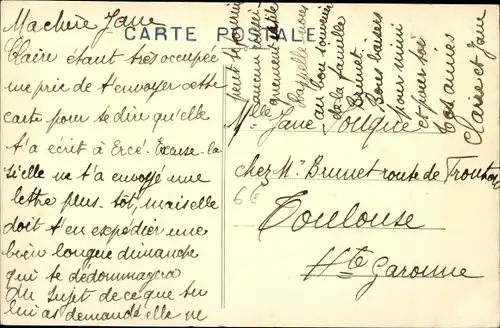 Ma chère Jane
CARTE POSTALE
Claire étant très occupée
me prie de t'envoyer cette
carte pour te dire qu'elle
t'a écrit à Ercé. Excuse-la
si elle ne t'a envoyé une
lettre plus tôt, mais elle
doit t'en expédier une
bien longue dimanche
qui te dédommagera
Au sujet de ce que tu
lui as demandé elle ne
peut te fournir
aucun
Rappelle nous
au bon souvenir
de la famille
Brunet.
Bons baisers
pour mimi
et pour toi
Tes amies
Claire et Jane
Mlle Jane Fouque
chez Mr Brunet route de
6E
Toulouse
Hte Garonne